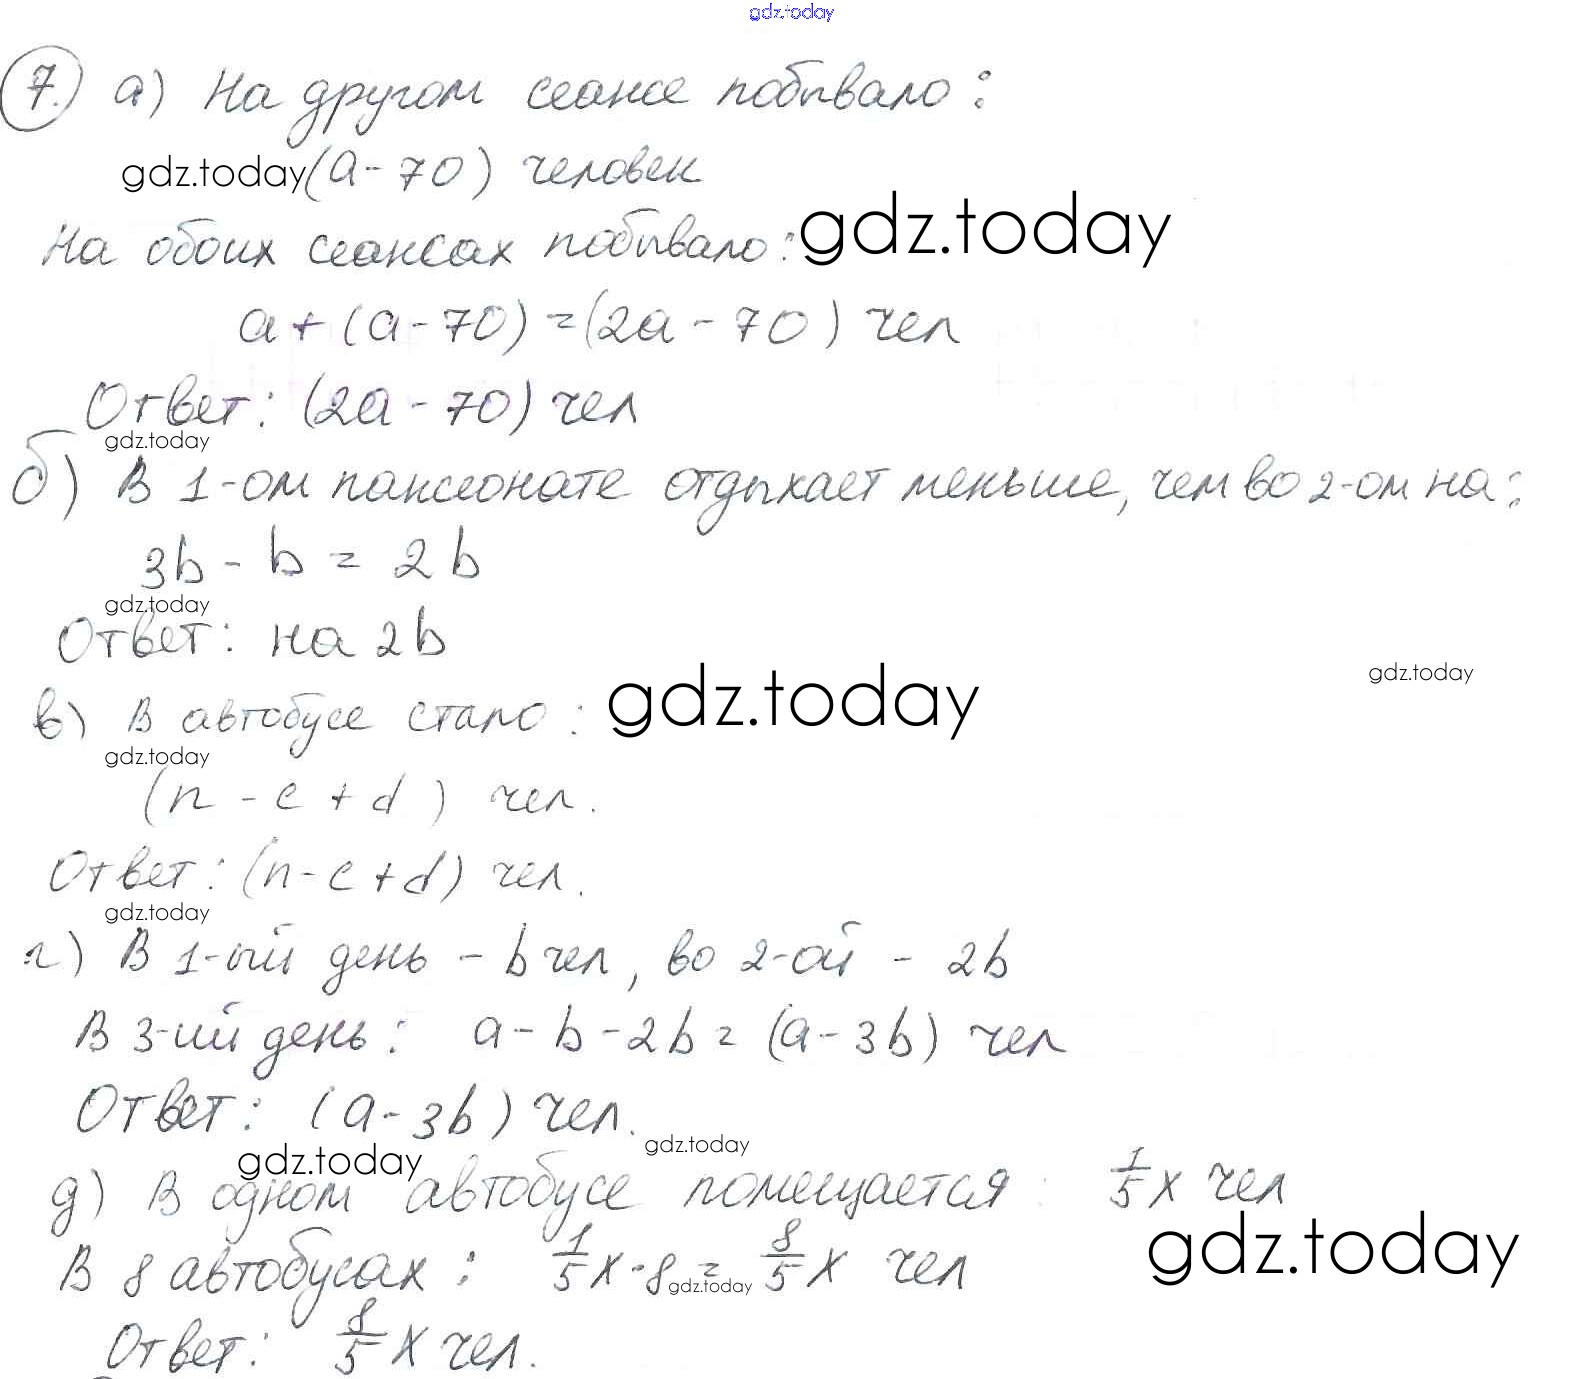 gdz.today
7. а) На другом сеансе побывало:
gdz.today (a - 70) человек
На обоих сеансах побывало: gdz.today
a + (a - 70) = (2a - 70) чел
Ответ: (2a - 70) чел
gdz.today
б) В 1-ом пансионате отдыхает меньше, чем во 2-ом на:
3b - b = 2b
gdz.today
Ответ: на 2b
gdz.today
в) В автобусе стало: gdz.today
gdz.today
(n - c + d) чел.
Ответ: (n - c + d) чел.
gdz.today
г) В 1-ый день - b чел, во 2-ой - 2b
В 3-ий день: a - b - 2b = (a - 3b) чел
Ответ: (a - 3b) чел.
gdz.today gdz.today
д) В одном автобусе помещается: 1/5 x чел
В 8 автобусах: 1/5 x · 8 = 8/5 x чел gdz.today
gdz.today
Ответ: 8/5 x чел.